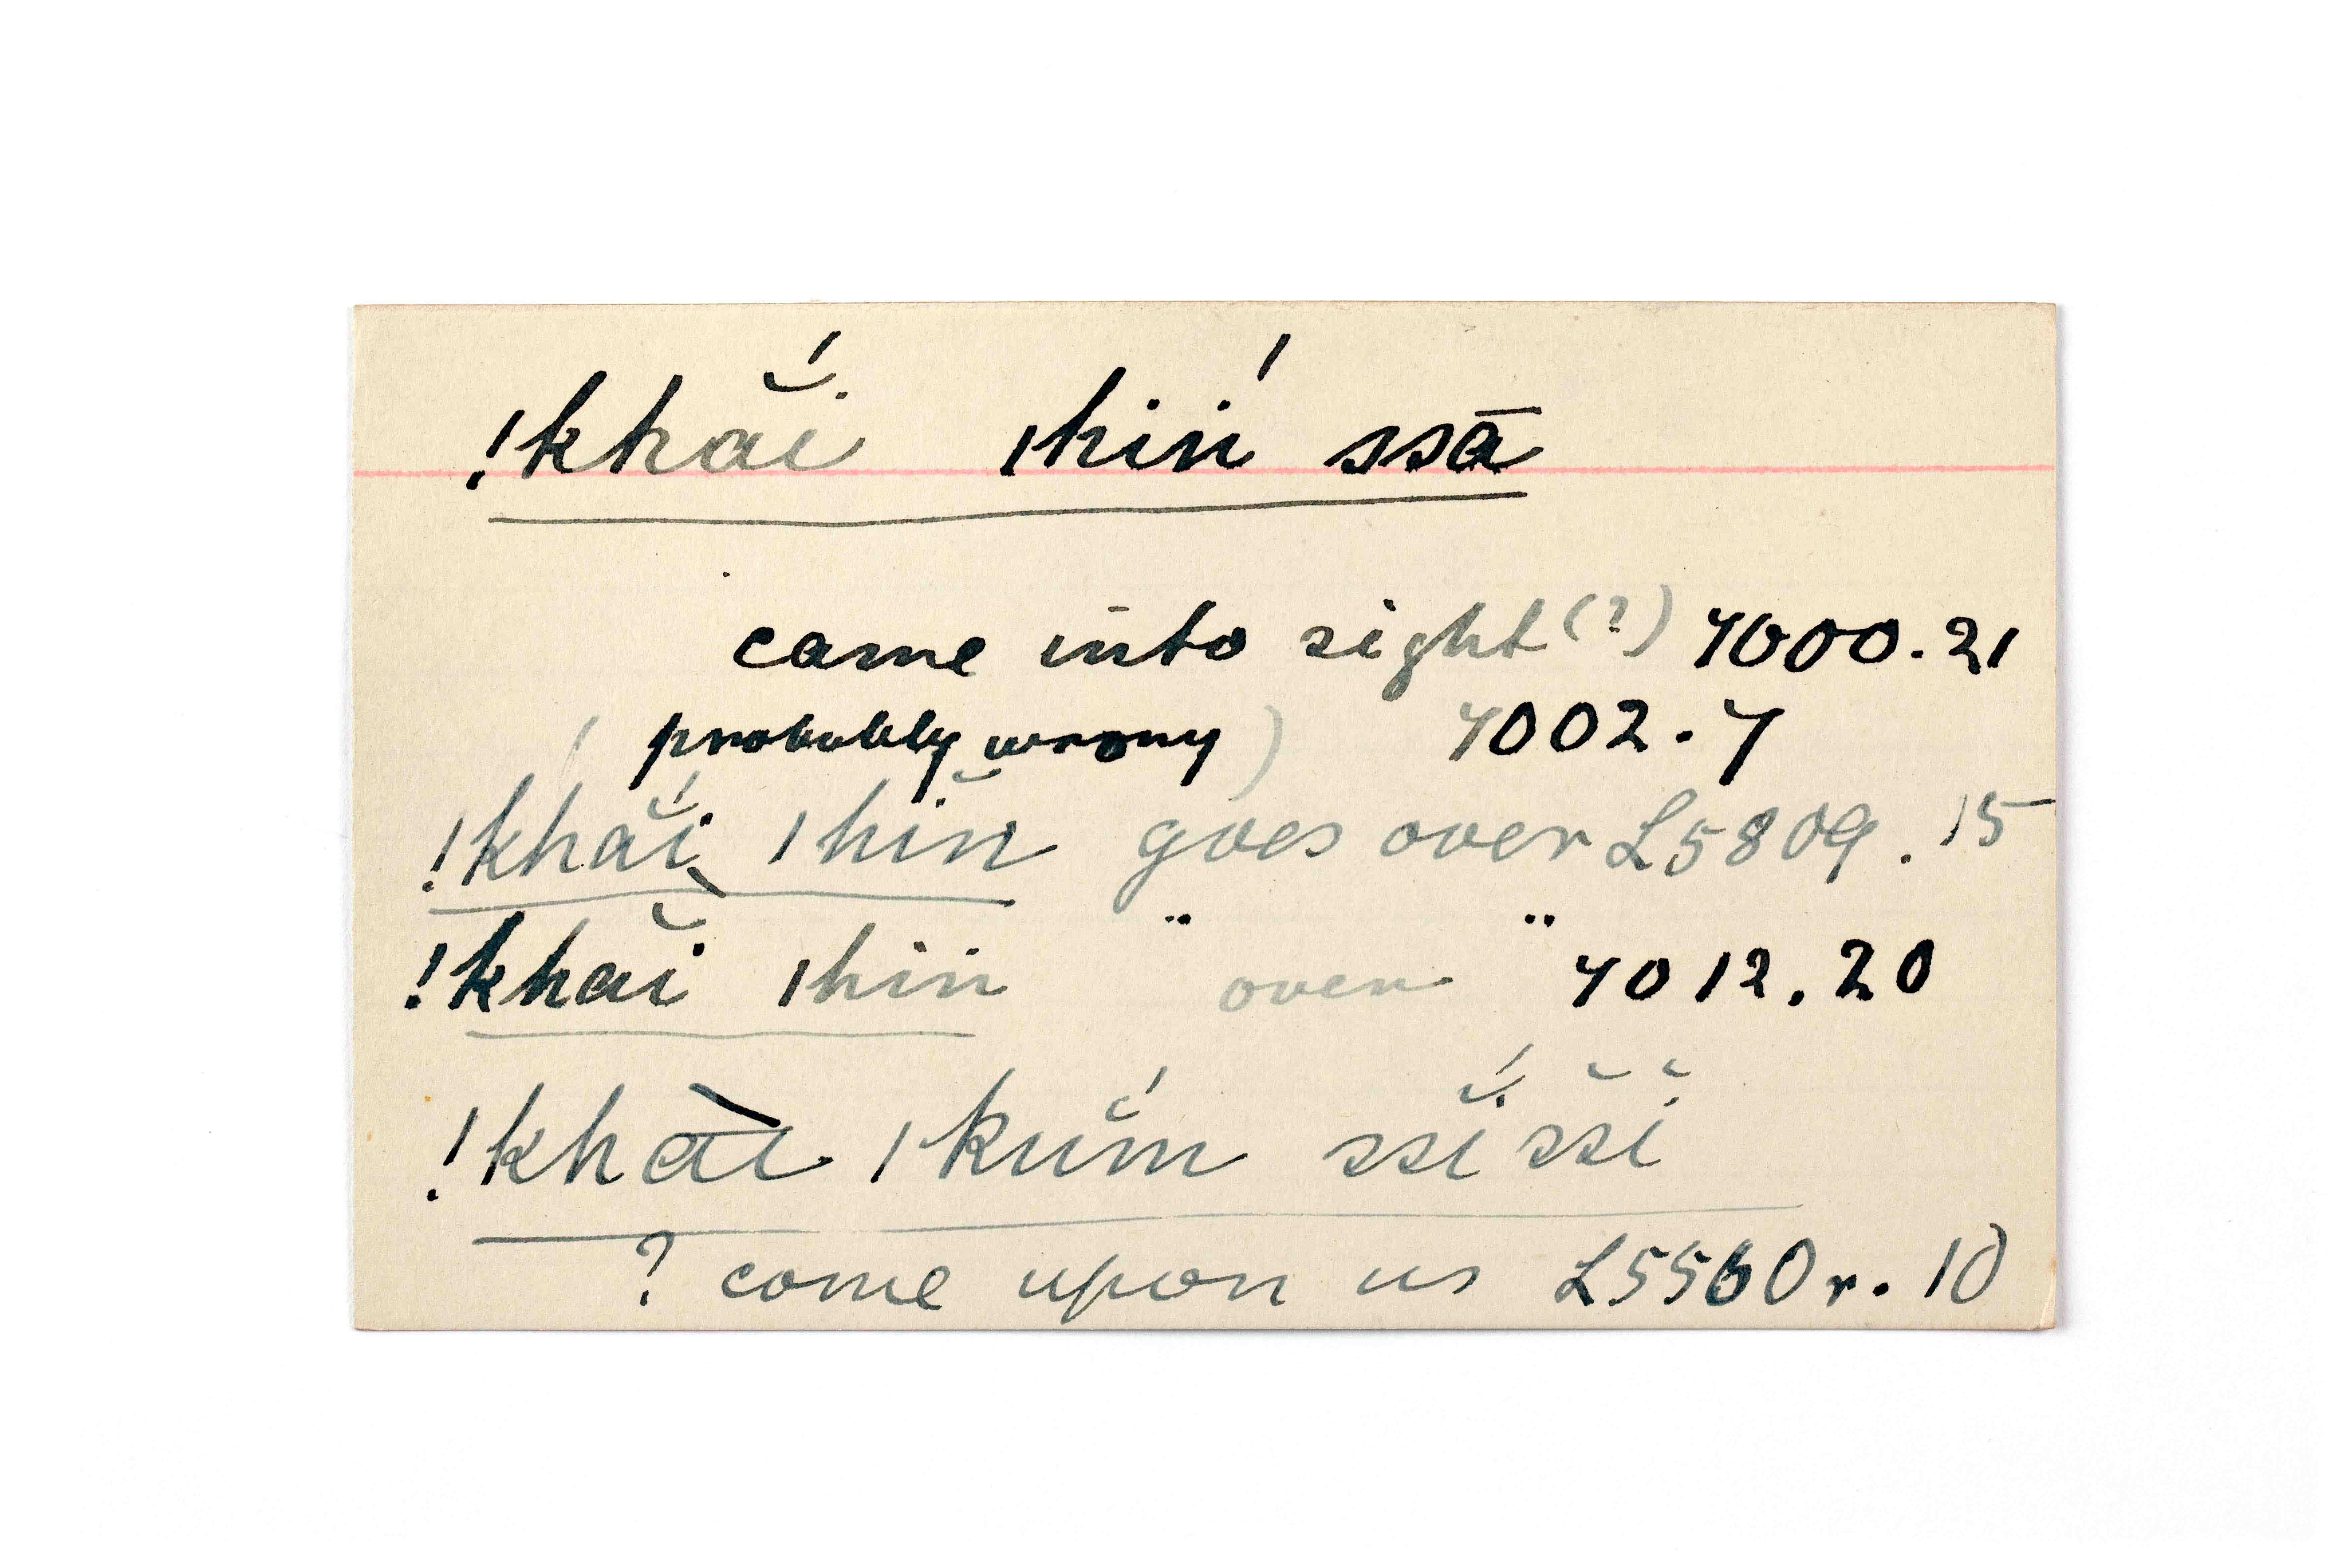 !khā̆́i ǀhiń ssā
came into sight (?) 4000.21
(probably wrong) 4002.7
!khā̆́i ǀhĭn goes over L5809.15
!khăi ǀhin " over " 4012.20
!khā̀i ǀkŭ́m ssĭ́ ssĭ
? come upon us L5560r.10